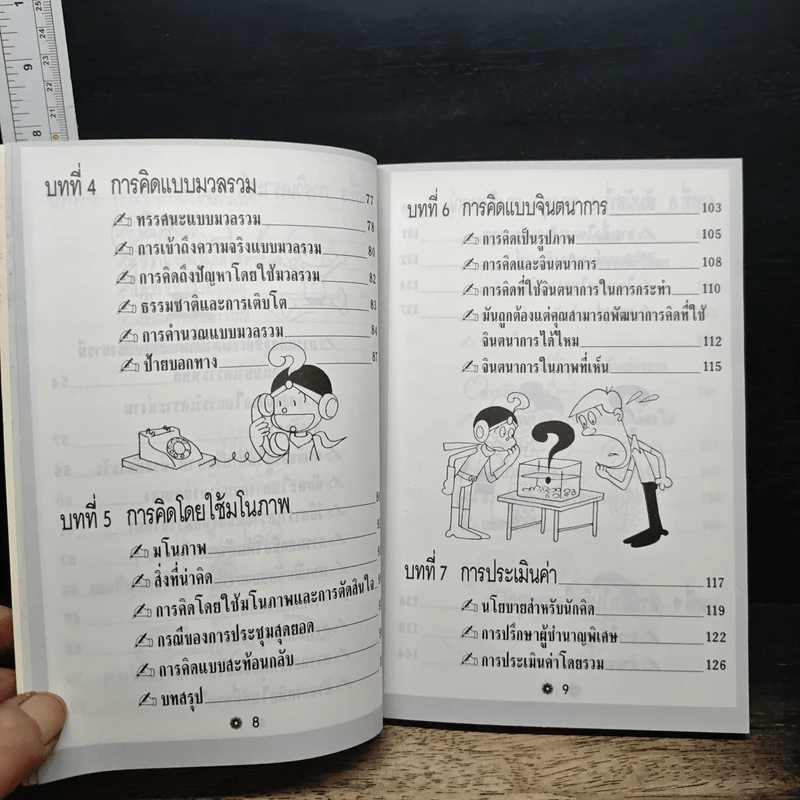 บทที่ 4 การคิดแบบมวลรวม 77
ทรรศนะแบบมวลรวม 78
การเข้าถึงความจริงแบบมวลรวม 80
การคิดถึงปัญหาโดยใช้มวลรวม 82
ธรรมชาติและการเติบโต 83
การคำนวณแบบมวลรวม 84
ป้ายบอกทาง 87
?
บทที่ 5 การคิดโดยใช้มโนภาพ
มโนภาพ
สิ่งที่น่าคิด
การคิดโดยใช้มโนภาพและการตัดสินใจ
กรณีของการประชุมสุดยอด
การคิดแบบสะท้อนกลับ
บทสรุป
8
บทที่ 6 การคิดแบบจินตนาการ 103
การคิดเป็นรูปภาพ 105
การคิดและจินตนาการ 108
การคิดที่ใช้จินตนาการในการกระทำ 110
มันถูกต้องแต่คุณสามารถพัฒนาการคิดที่ใช้
จินตนาการได้ไหม 112
จินตนาการในภาพที่เห็น 115
? ?
บทที่ 7 การประเมินค่า 117
นโยบายสำหรับนักคิด 119
การปรึกษาผู้ชำนาญพิเศษ 122
การประเมินค่าโดยรวม 126
9
9
8